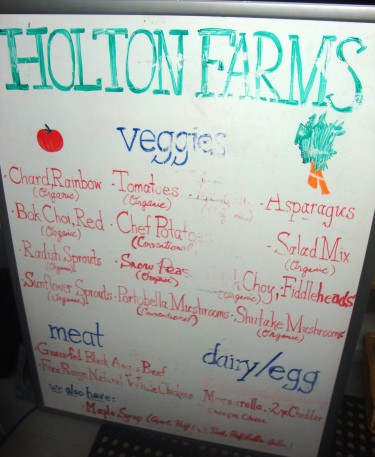 HOLTON FARMS
veggies
Chard, Rainbow
(Organic)
Bok Choi, Red
(Organic)
Radish Sprouts
(Organic)
Sunflower Sprouts
(Organic)
Tomatoes
(Organic)
Chef Potatoes
(Conventional)
Snow Peas
(Organic)
Portobella Mushrooms
(Conventional)
Asparagus
Salad Mix
(Organic)
Choy, Fiddleheads
(Organic)
Shiitake Mushrooms
(Organic)
meat
Grassfed Black Angus Beef
Free Range Natural White Chickens
dairy/egg
Mozzarella, 2 yr Cheddar
we also have:
Maple Syrup